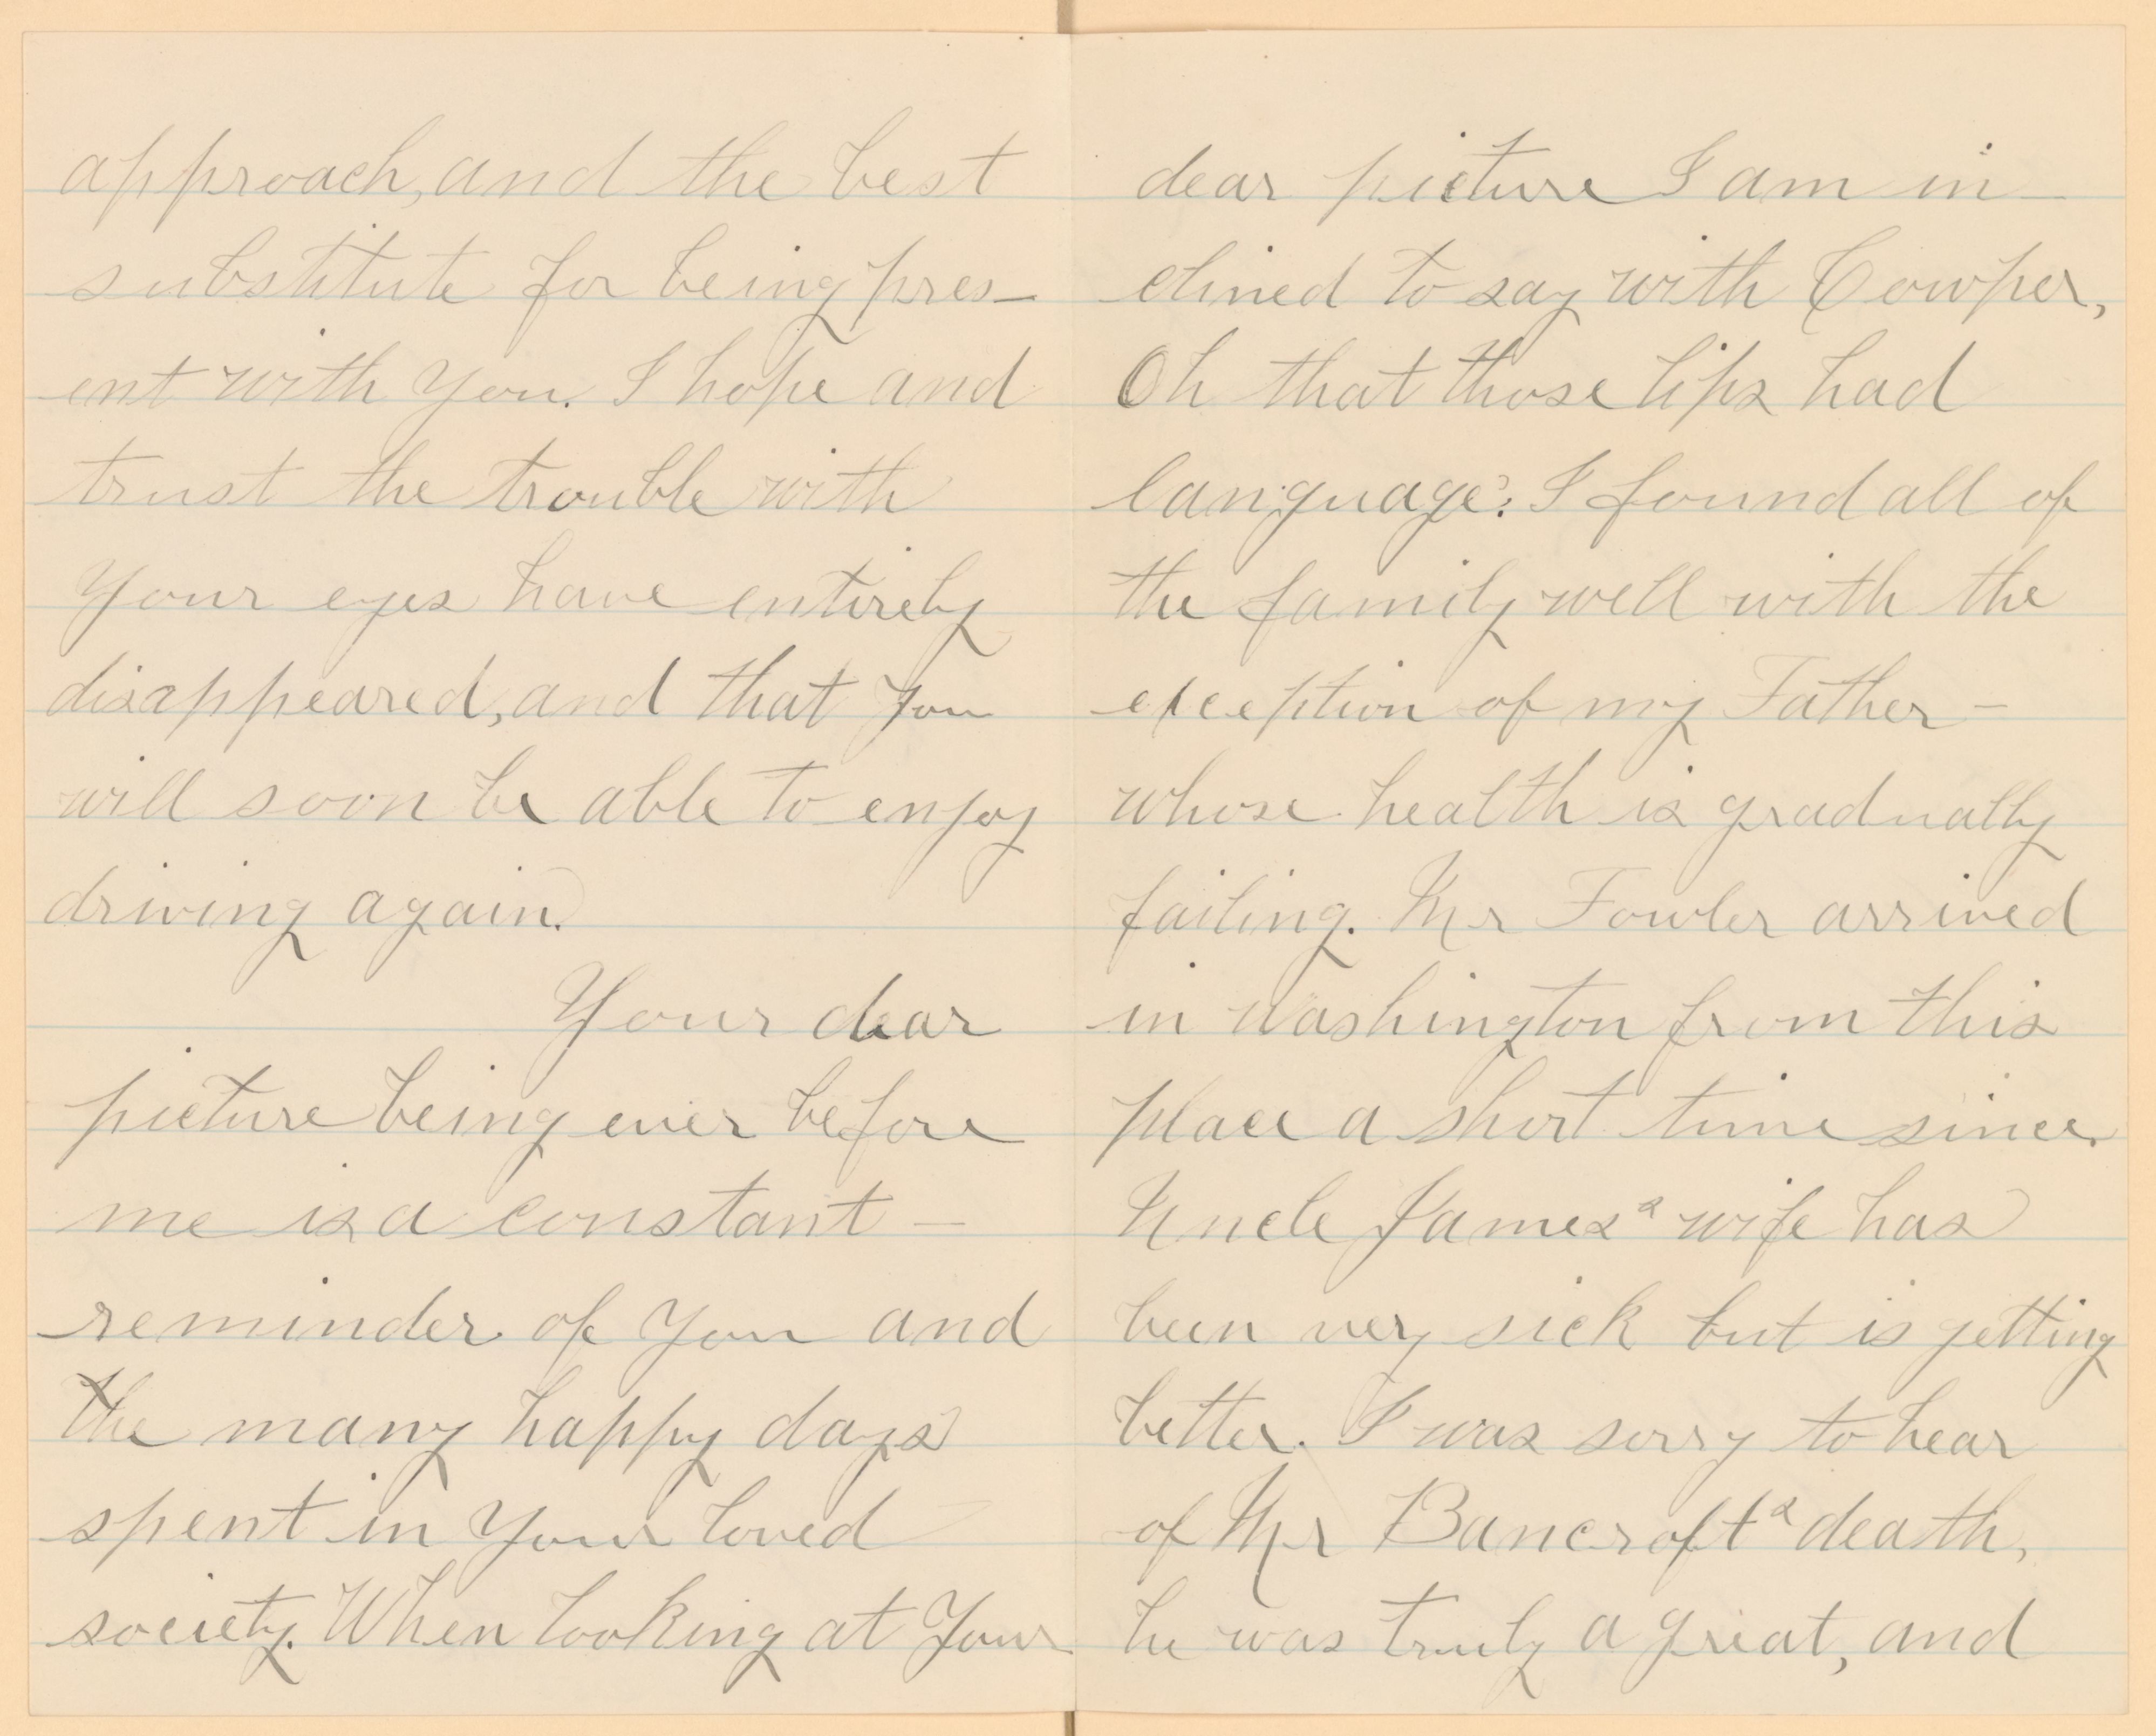 approach, and the best
substitute for being pres-
ent with You. I hope and
trust the trouble with
Your eyes have entirely
disappeared, and that You
will soon be able to enjoy
driving again.
Your dear
picture being ever before
me is a constant -
reminder of You and
the many happy days
spent in Your loved
society. When looking at Your
dear picture I am in-
clined to say with Cowper,
Oh that those lips had
language. I found all of
the family well with the
exception of my Father -
whose health is gradually
failing. Mr Fowler arrived
in Washington from this
place a short time since.
Uncle James's wife has
been very sick but is getting
better. I was sorry to hear
of Mr Bancroft's death,
he was truly a great, and